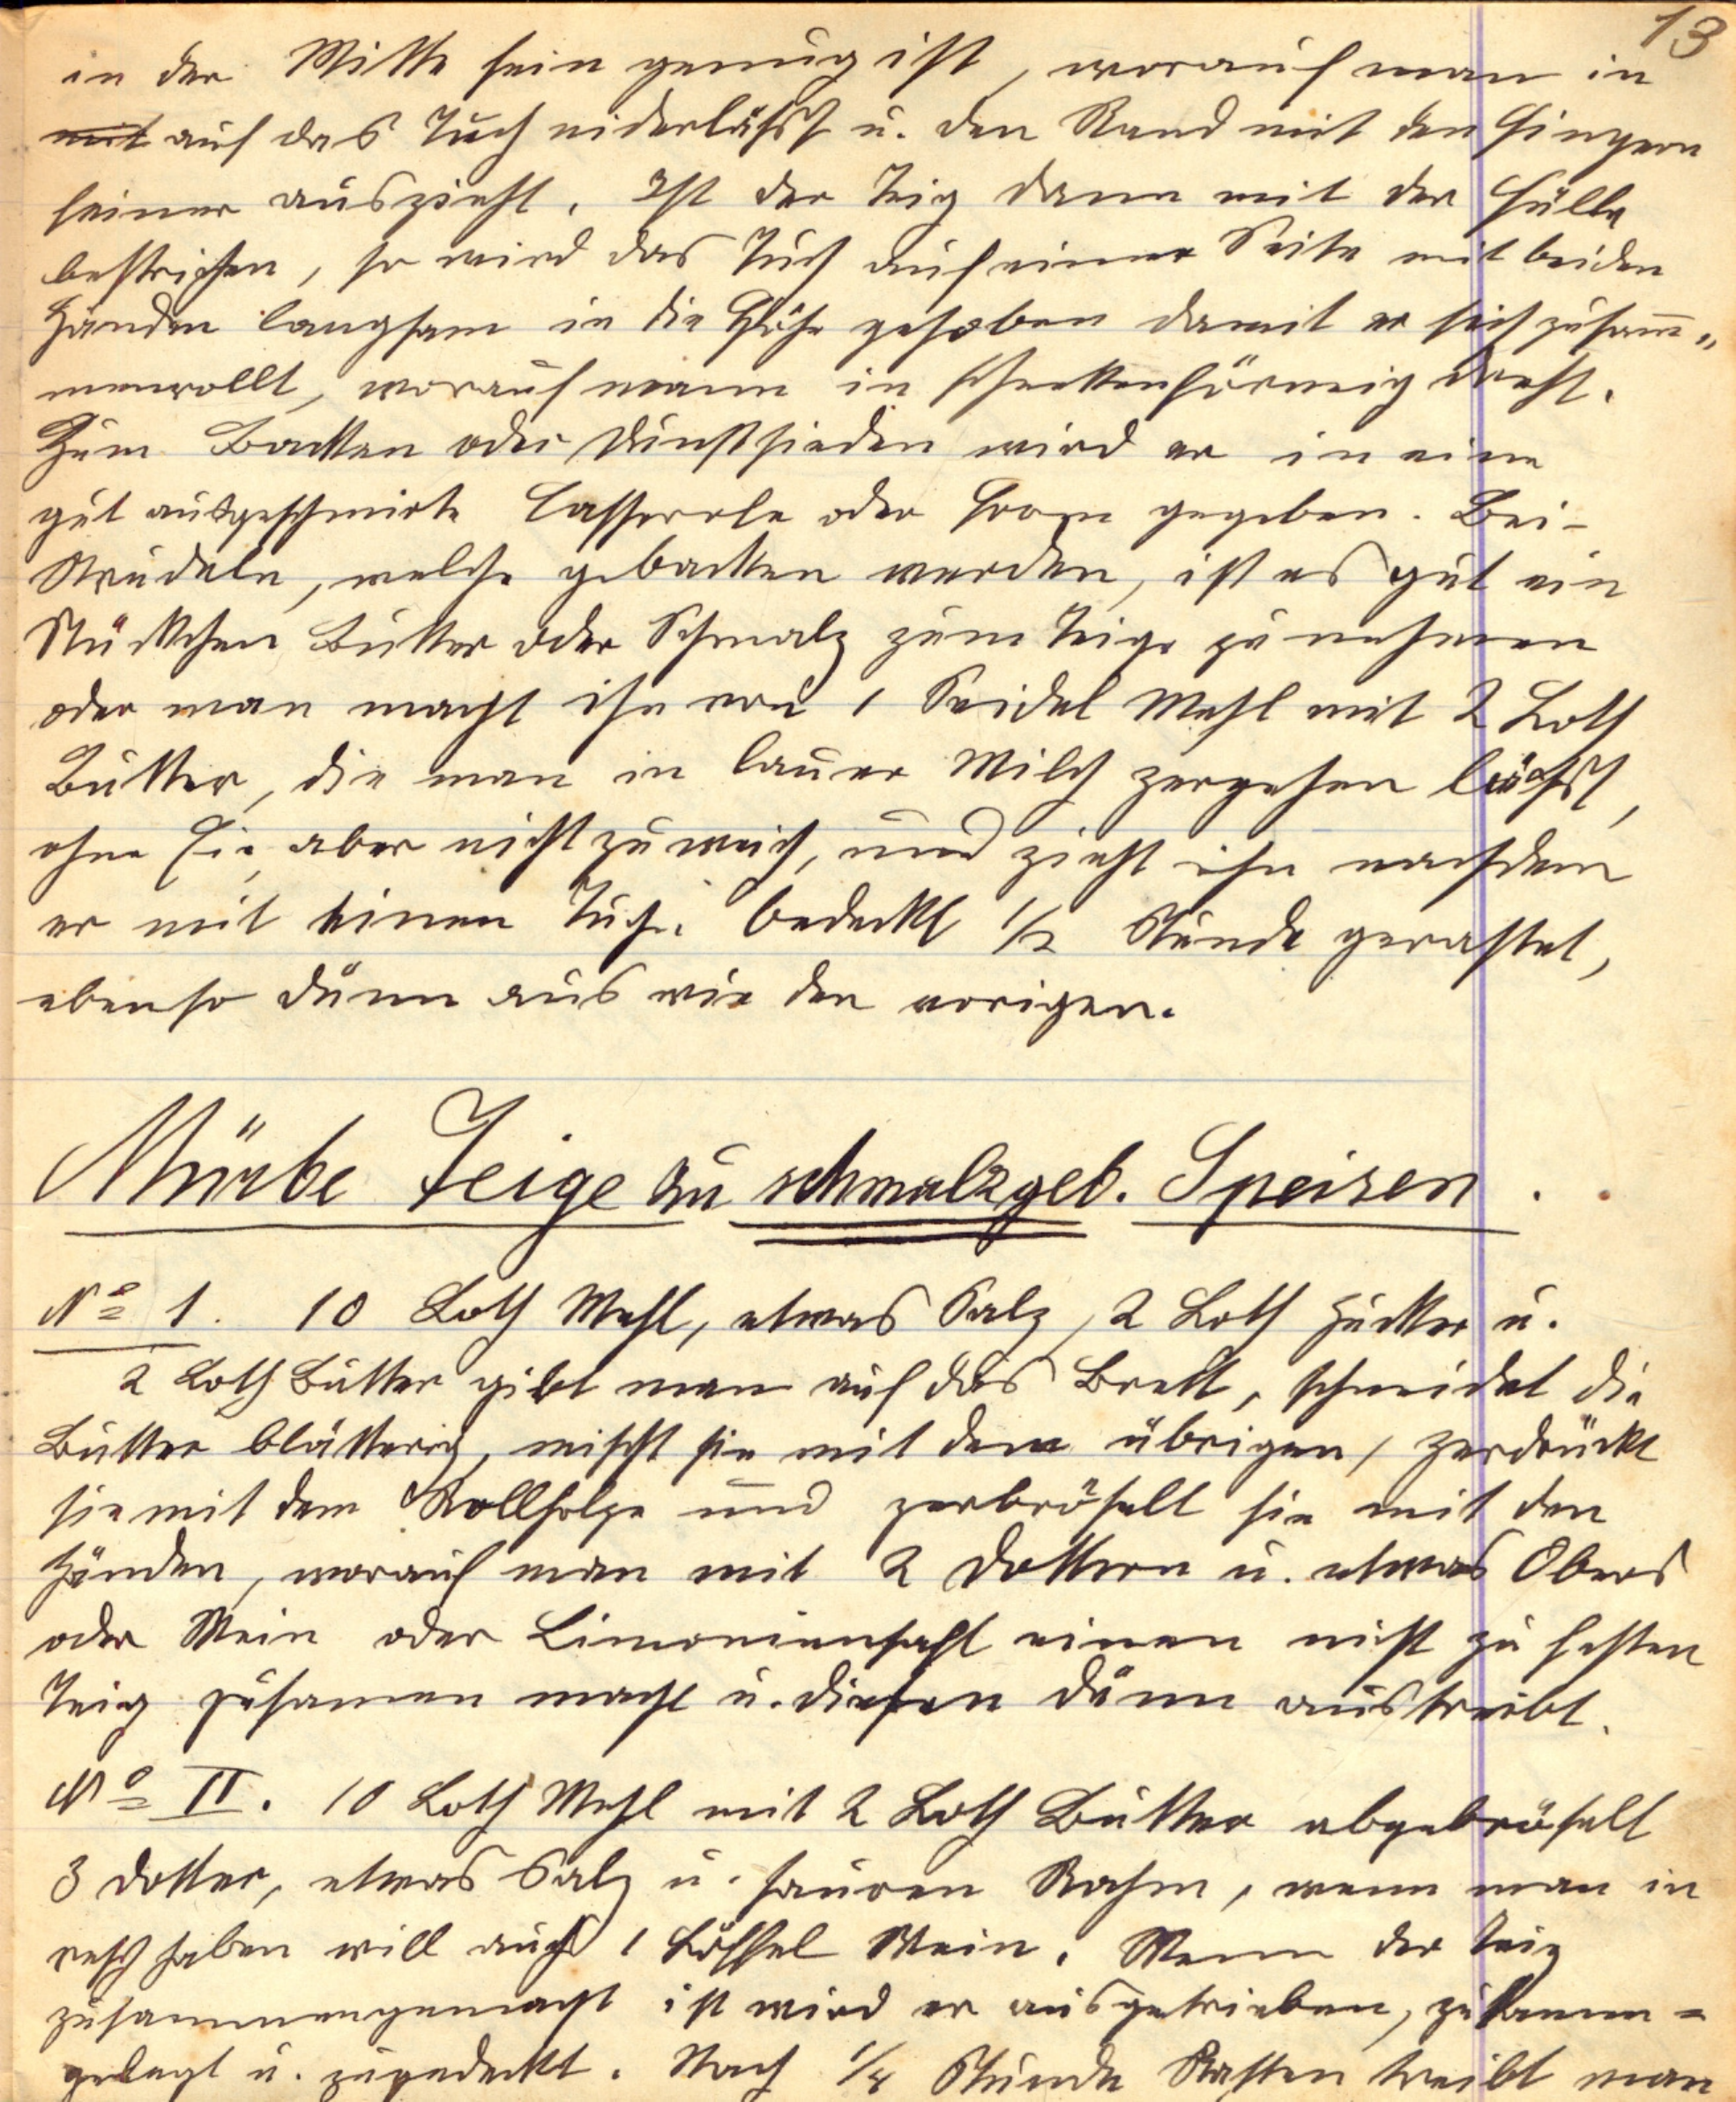 13
in der Mitte fein genug ist, worauf man in
mit auf das Tuch niderläßt u. den Rand mit den Fingern
feiner auszieht. Ist der Teig dann mit der Fülle
bestrichen, so wird das Tuch auf einer Seite mit beiden
Händen langsam in die Höhe gehoben damit er sich zusam̅=
menrollt, worauf mann in schneckenförmig dreht.
Zum Backen oder Dunstsieden wird er in eine
gut ausgeschmirte Casserole oder Form gegeben. Bei-
Strudeln, welche gebacken werden, ist es gut ein
Stückchen Butter oder Schmalz zum Teige zu nehmen
oder man macht ihn von 1 Seidel Mehl mit 2 Loth
Butter, die man in lauer Milch zergehen läßt,
ohne Ei, aber nicht zu weich, und zieht ihn nachdem
er mit einen Tuche bedeckt 1/2 Stunde gerastet,
ebenso dünn aus wie den vorigen.
Mürbe Teige zu schmalzgeb. Speisen.
No 1. 10 Loth Mehl, etwas Salz, 2 Loth Zucker u.
2 Loth Butter gibt man auf das Brett, schneidet die
Butter blätterig, mischt sie mit dem übrigen, zerdrückt
sie mit dem Rollholze und zerbröselt sie mit den
Händen, worauf man mit 2 Dottern u. etwas Obers
oder Wein oder Limoniensaft einen nicht zu festen
Teig zusamen macht u. diesen dünn austreibt.
No II. 10 Loth Mehl mit 2 Loth Butter abgebröselt
3 Dotter, etwas Salz u. sauren Rahm, wenn man in
resch haben will auch 1 Löffel Wein. Wenn der Teig
zusammengemacht ist wird er ausgetrieben, zusamen=
gelegt u. zugedeckt. Nach 1/4 Stunde Rasten treibt man